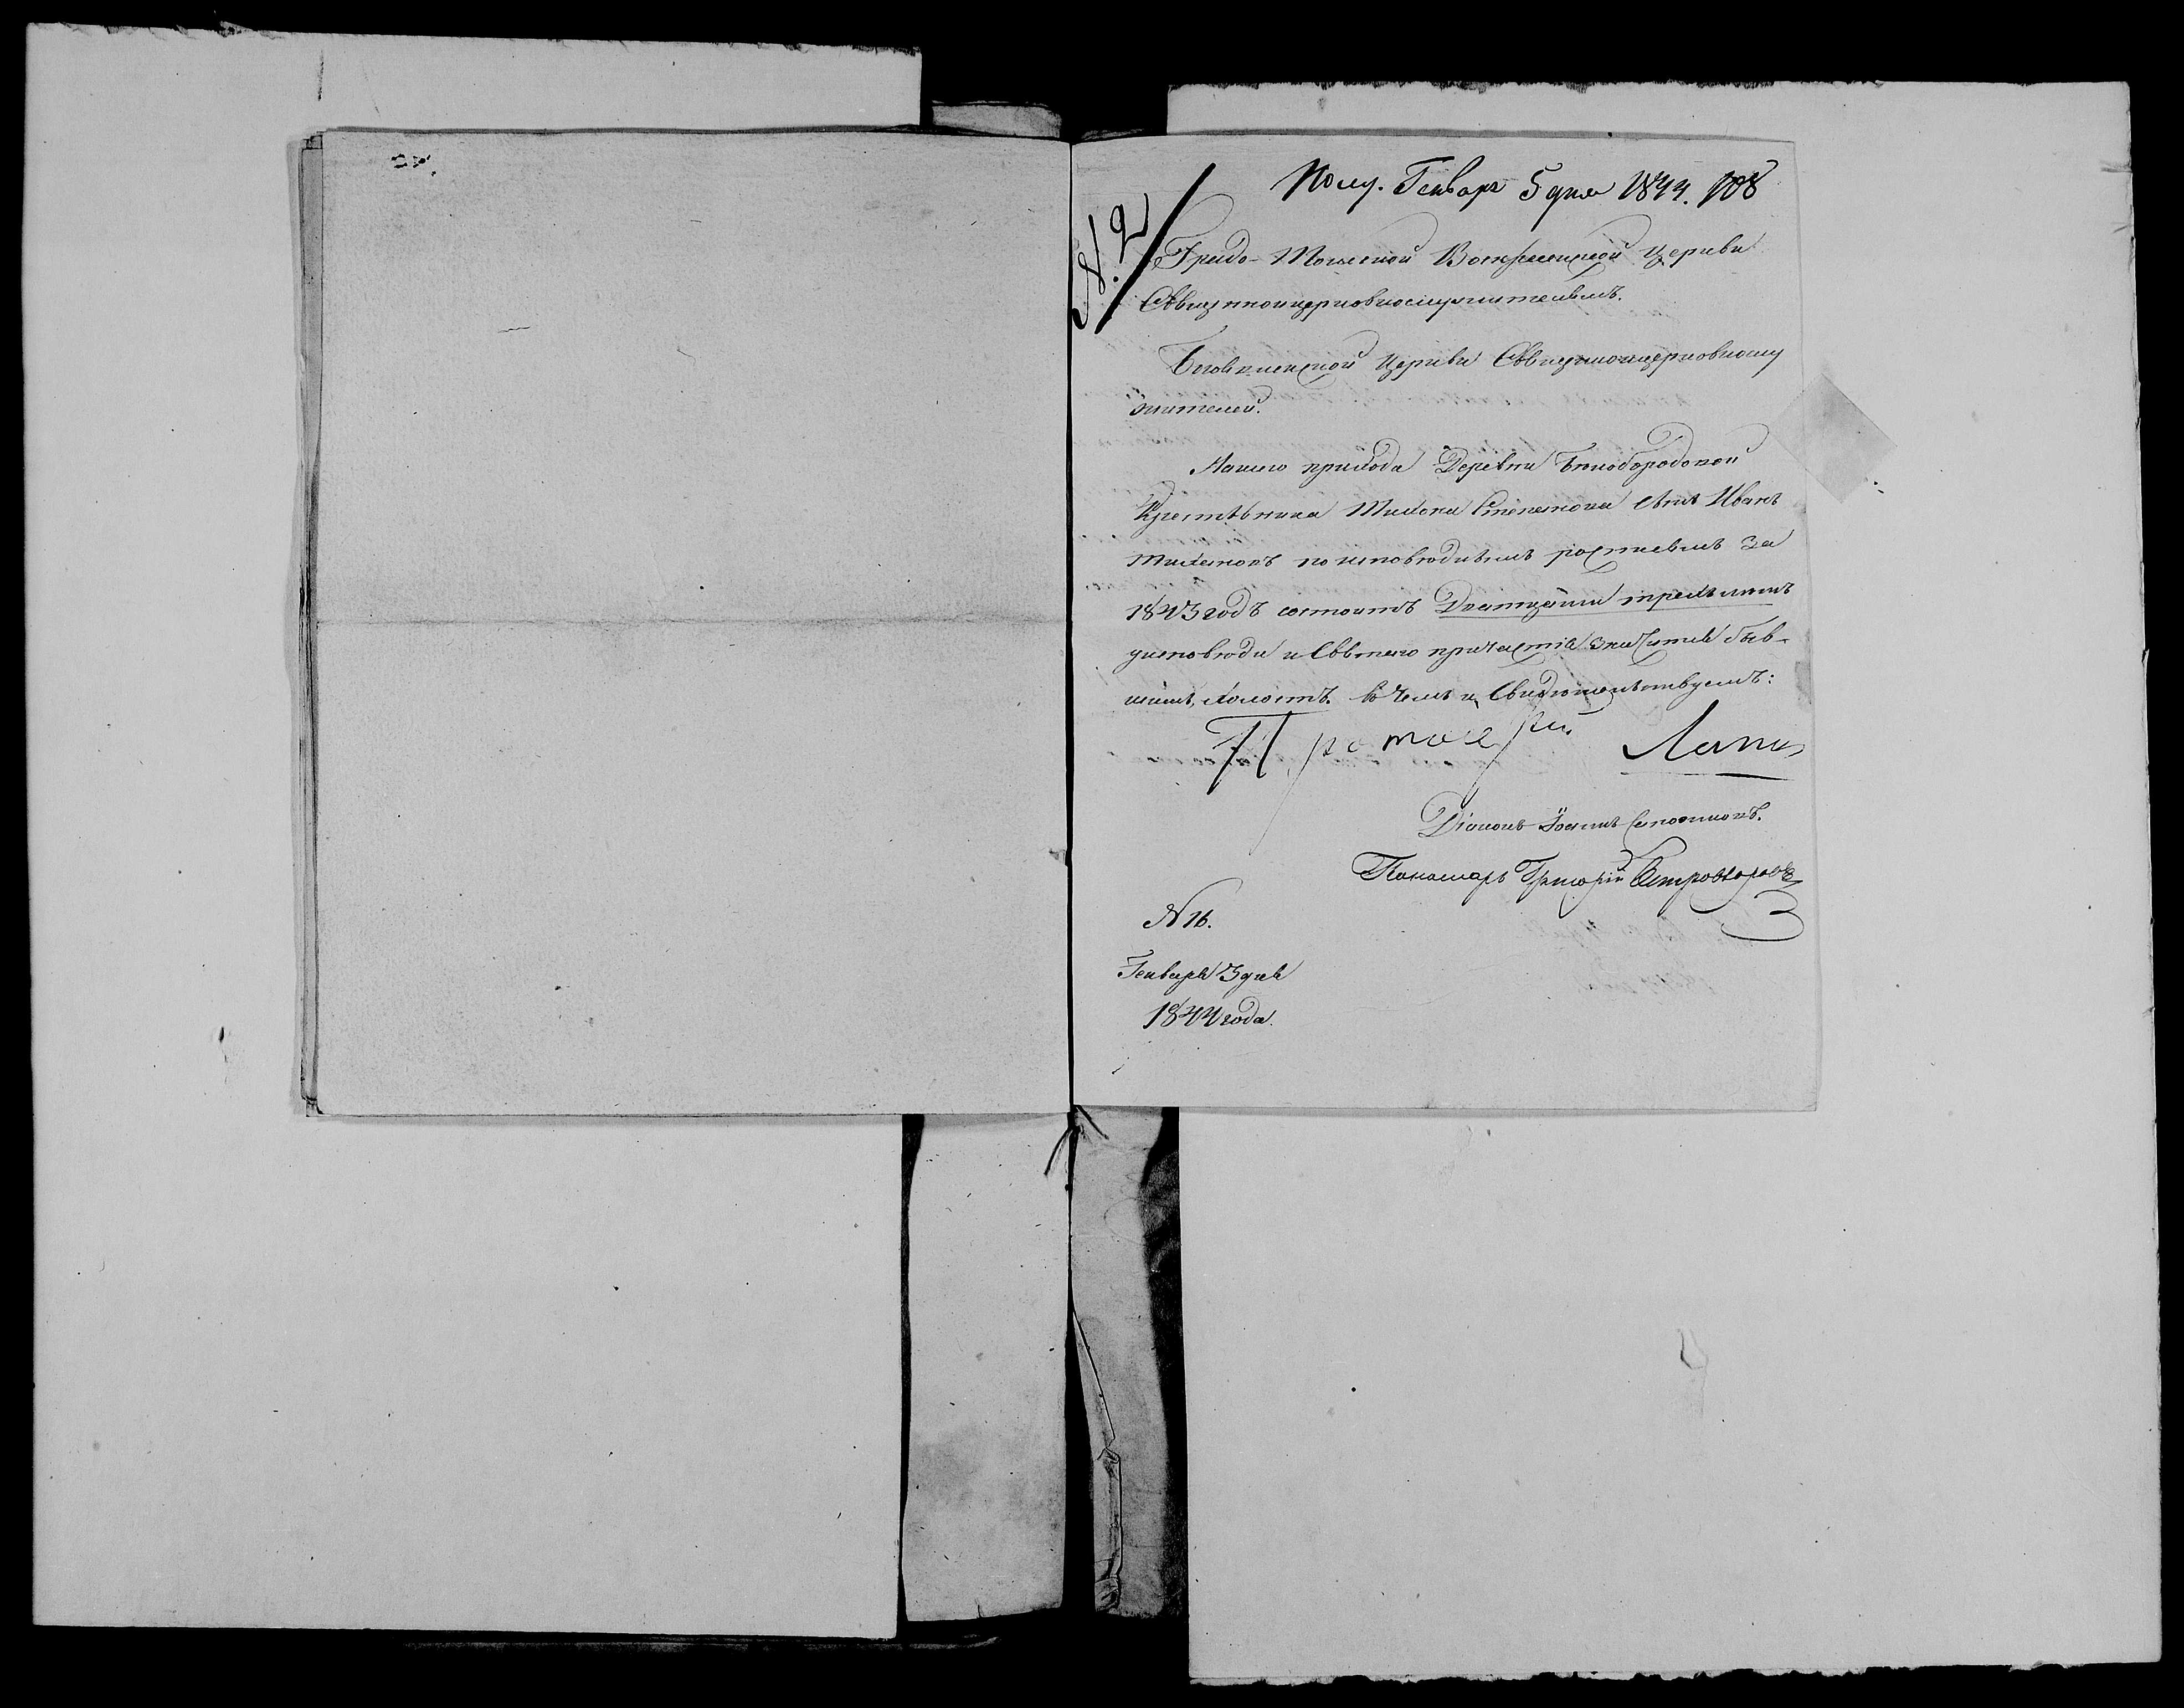 Полу. Генваря 5 дня 1844. 108
N. 2
Градо-Томской Воскресенской Церкви
Священноцерковнослужителямъ.
Богоявленской Церкви Священноцерковнослу
жителей.
Нашего прихода Деревни Белобородовой
Крестьянина Тихона Степанова сынъ Иванъ
Тихоновъ по исповѣднымъ росписямъ за
1843 годъ состоитъ Дватцати трехъ лѣтъ
уисповѣди и Святаго причастія значится быв-
шимъ, холостъ. въ чемъ и Свидѣтельствуемъ:
Протоіерей
Діаконъ Іоаннъ
Пономарь Григорій
N 16.
Генваря 3 дня
1844 года.